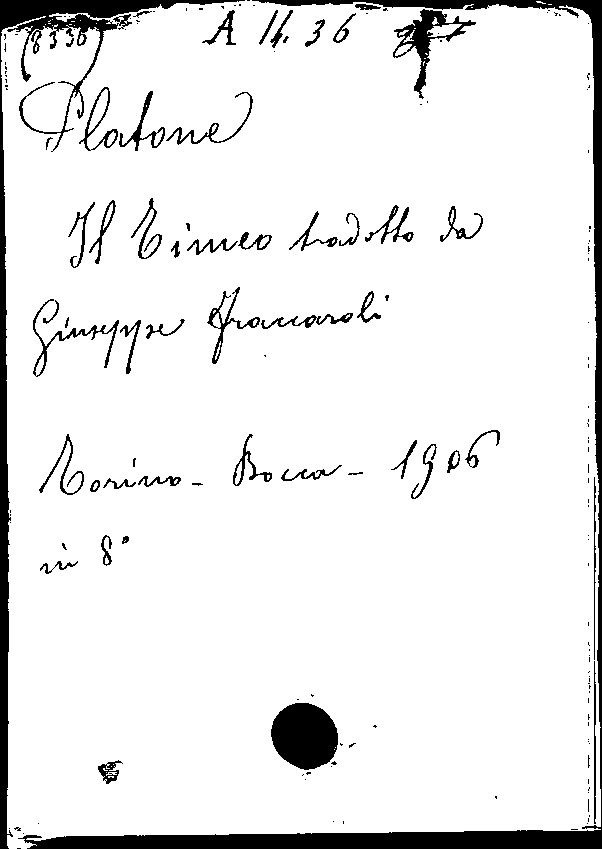 (8336) A 14. 36
Platone
Il Timeo tradotto da
Giuseppe Fraccaroli
Torino - Bocca - 1906
in 8°